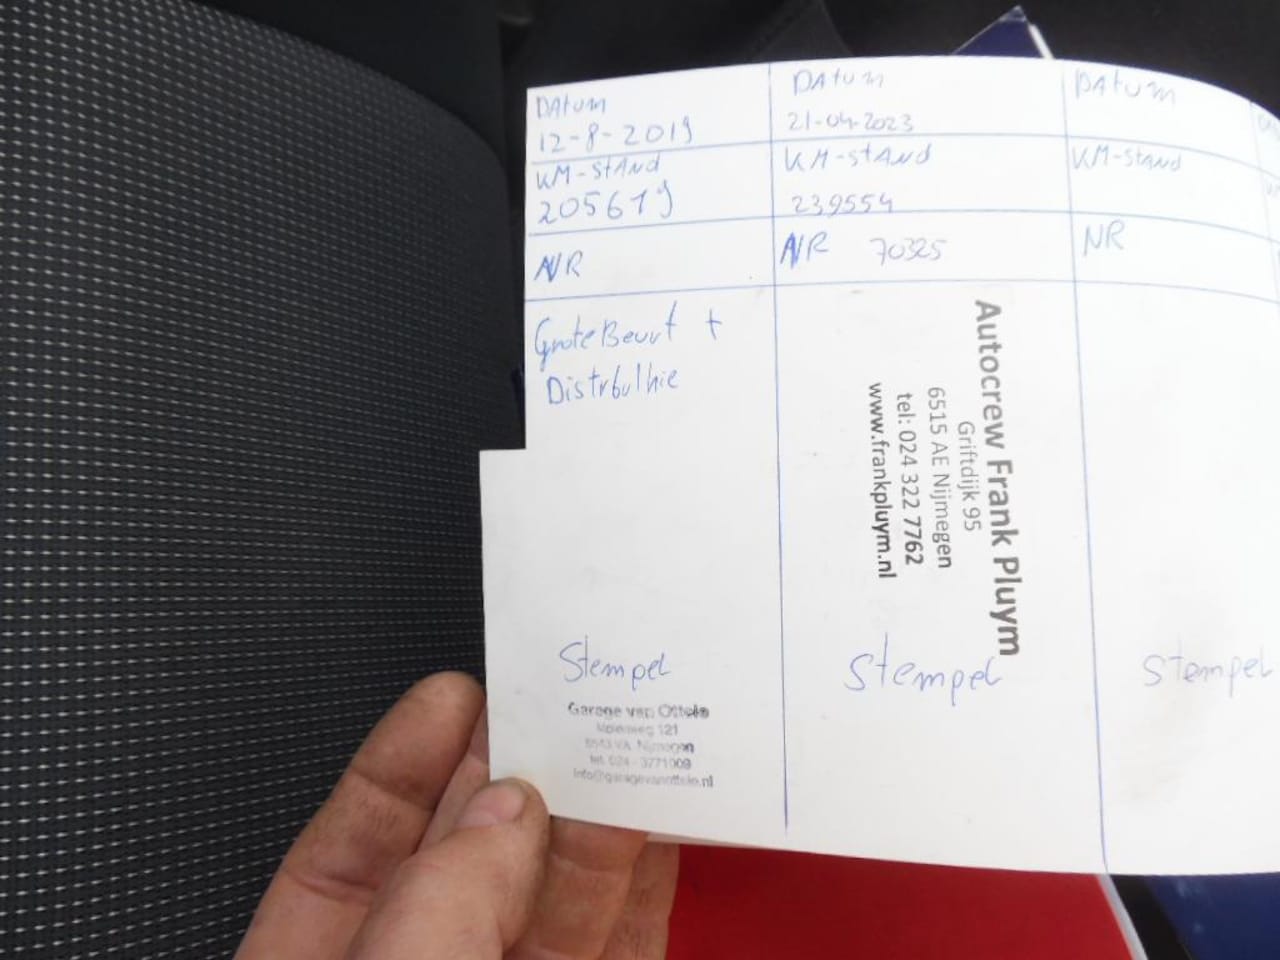 DAtum
12-8-2019
KM-StANd
205619
NR
Grote Beurt +
Distrbuthie
Stempel
Garage van Ottele
121
Nijmegen
tel. 024 - 3771009
DAtum
21-04-2023
KM-StANd
239554
NR 70325
Autocrew Frank Pluym
Griftdijk 95
6515 AE Nijmegen
tel: 024 322 7762
www.frankpluym.nl
Stempel
DAtum
KM-StANd
NR
Stempel